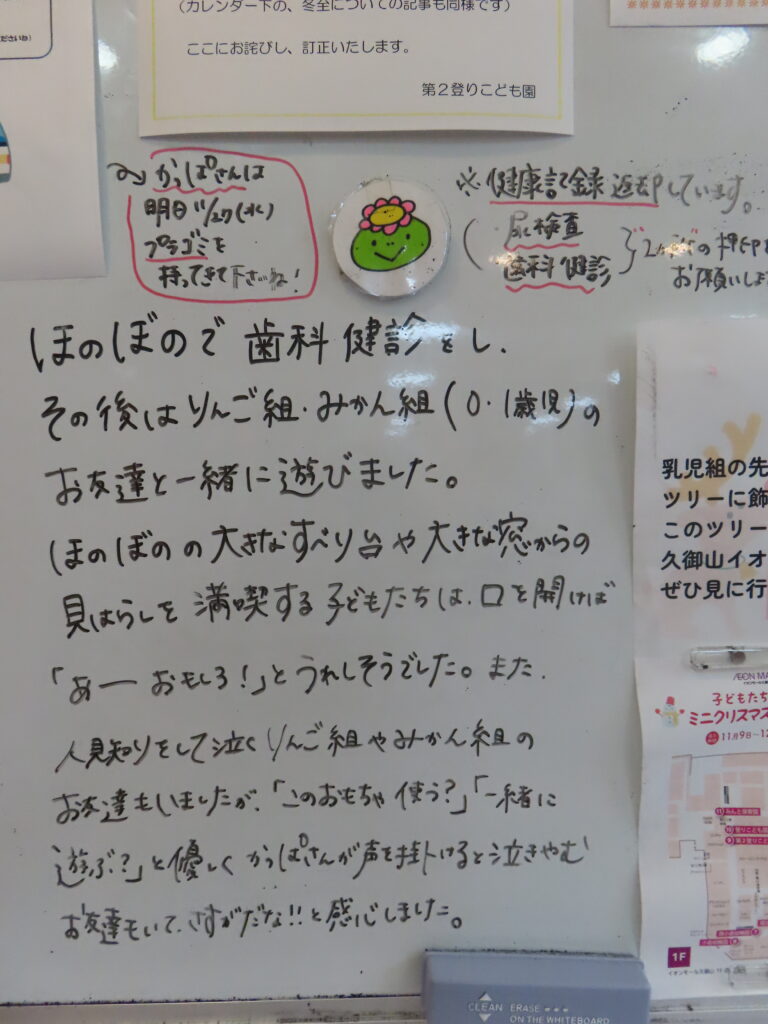 ださいね)
(カレンダー下の、冬至についての記事も同様です)
ここにお詫びし、訂正いたします。
第2登りこども園
かっぱさんは
明日11/27(水)
プラゴミを
持ってきて下さいね!
※健康記録返却しています。
尿検査
歯科健診
の押印を
お願いしま
ほのぼので歯科健診をし、
その後はりんご組・みかん組(0・1歳児)の
お友達と一緒に遊びました。
ほのぼのの大きなすべり台や大きな窓からの
見はらしを満喫する子どもたちは、口を開けば
「あーおもしろ!」とうれしそうでした。また、
人見知りをして泣くりんご組やみかん組の
お友達もいましたが、「このおもちゃ使う?」「一緒に
遊ぶ?」と優しくかっぱさんが声を掛けると泣きやむ
お友達もいて、さすがだな!!と感じました。
乳児組の先
ツリーに飾
このツリー
久御山イオ
ぜひ見に行
ÆON MA
子どもたち
ミニクリスマス
11月9日~12
1F
CLEAN ERASE
ON THE WHITEBOARD